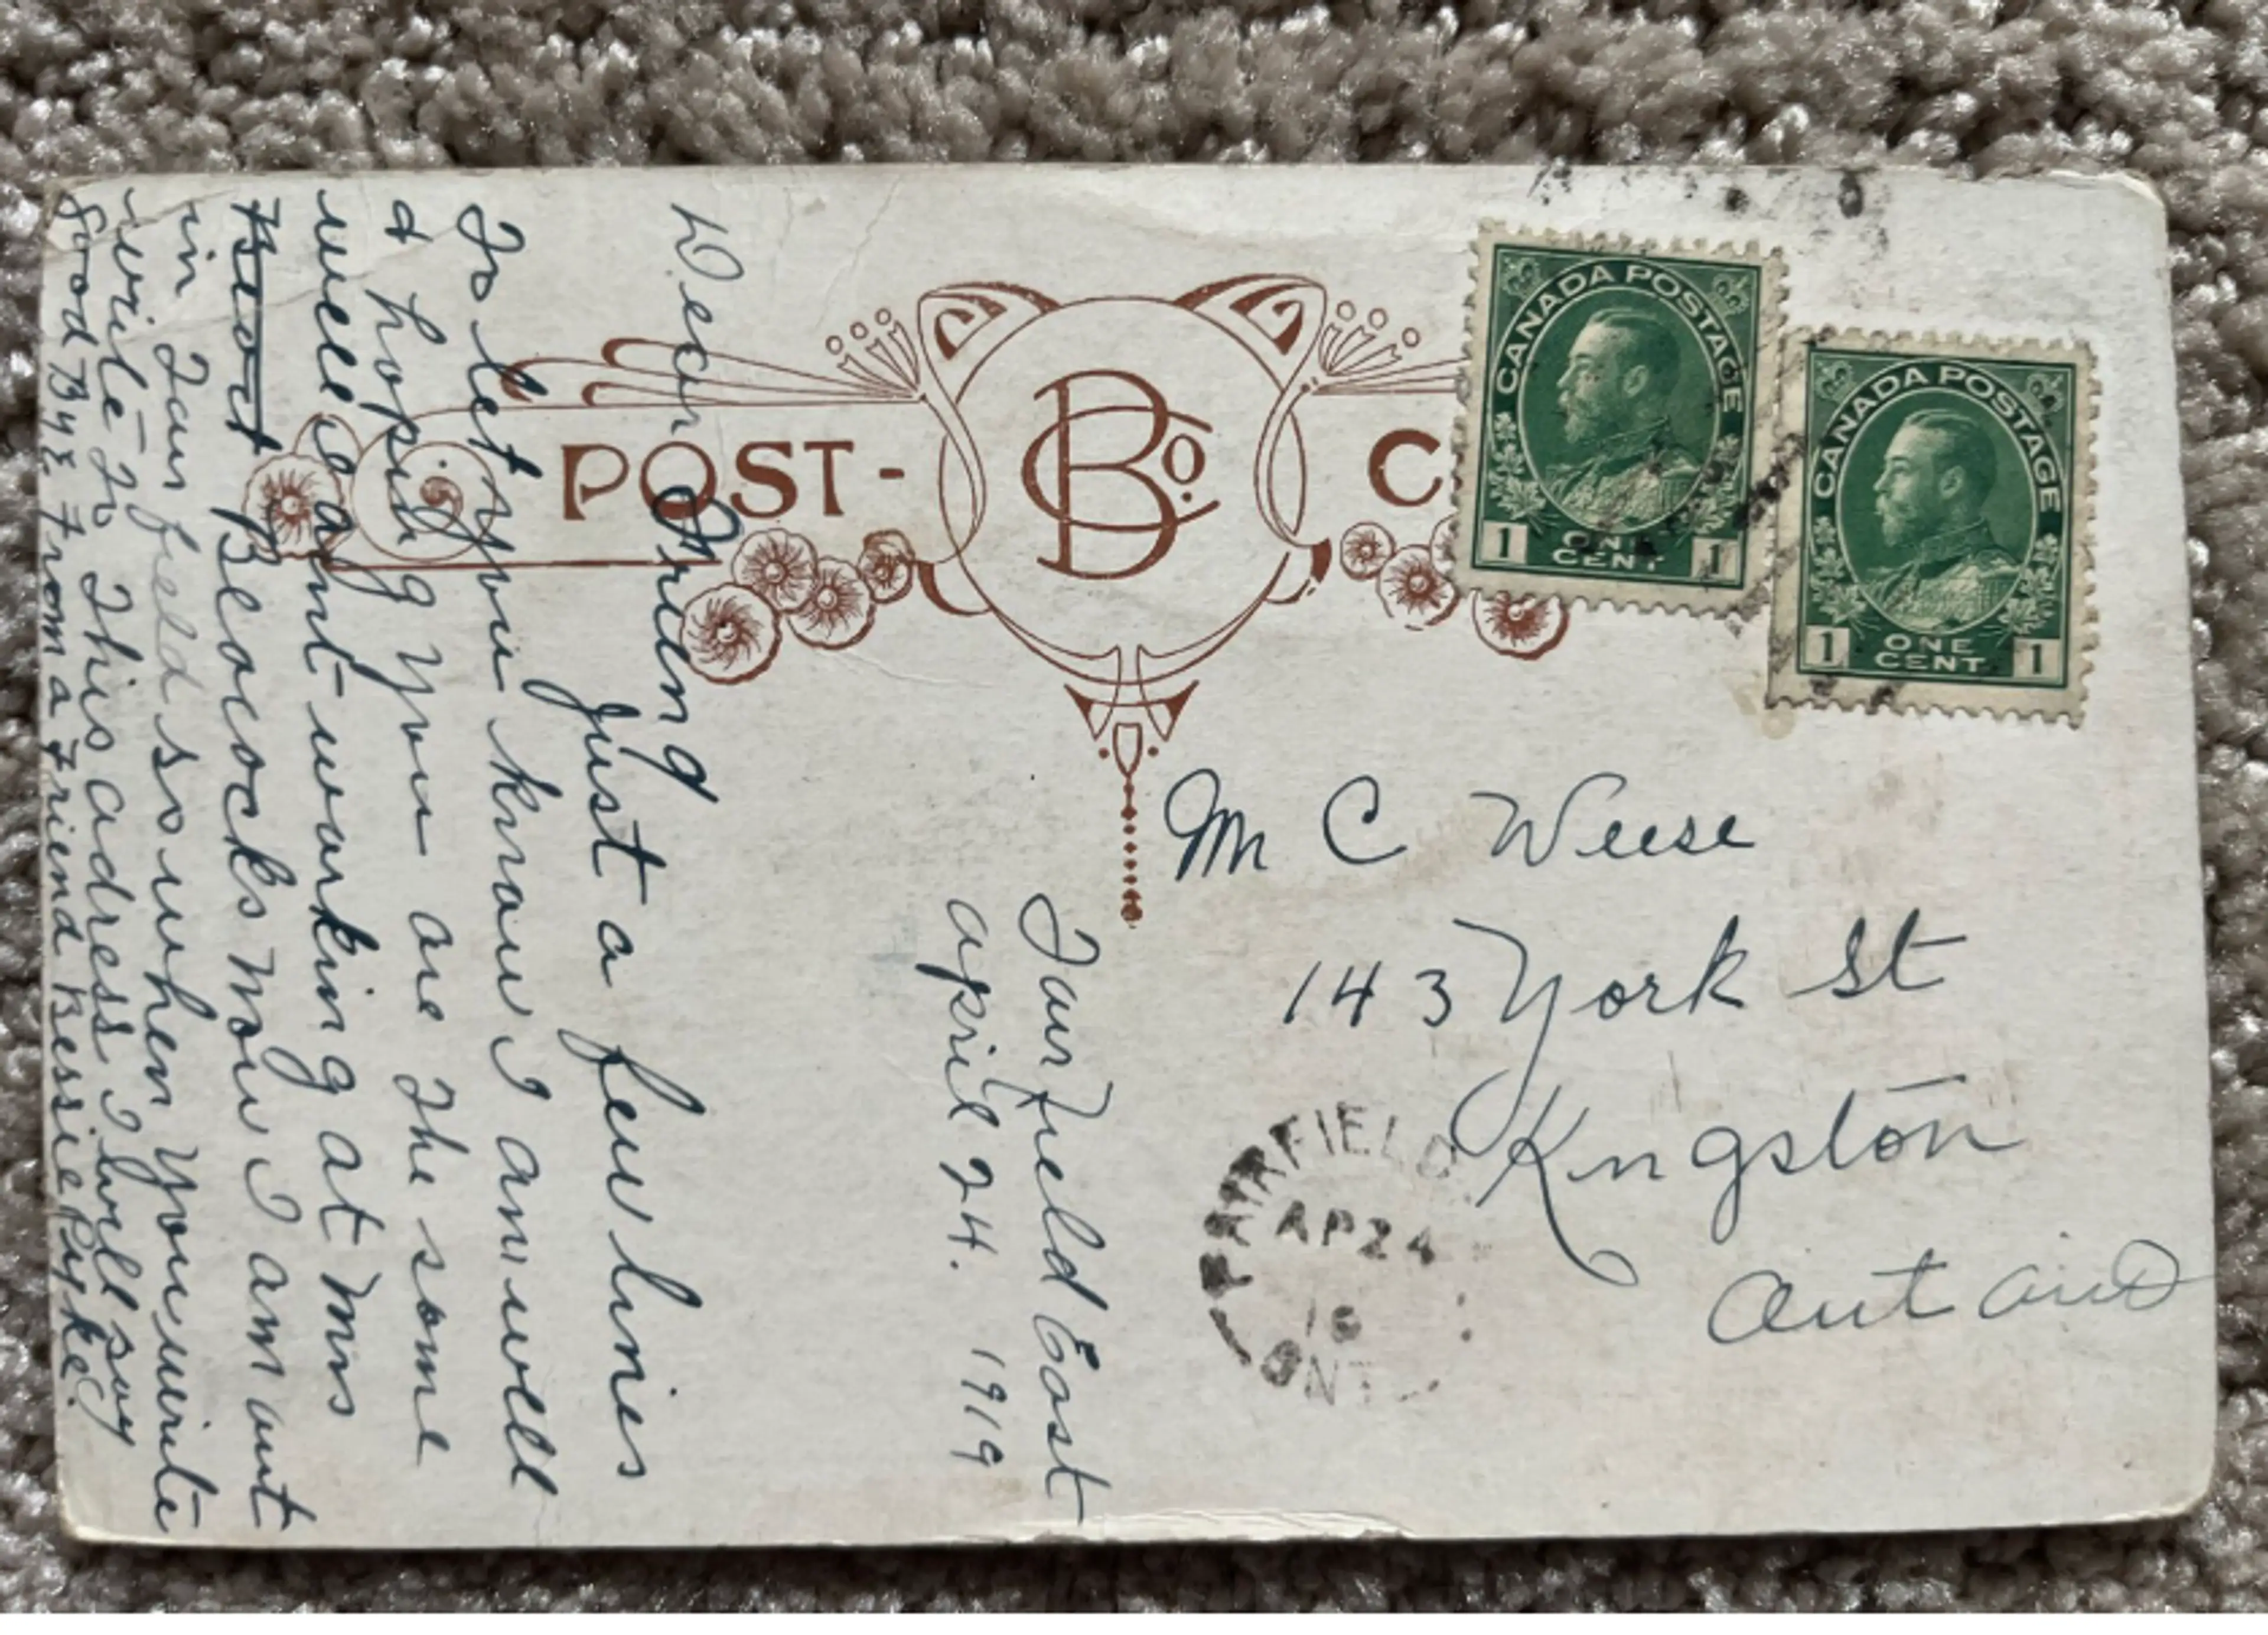 POST-
C
B Co.
CANADA POSTAGE
1 ONE CENT 1
CANADA POSTAGE
1 ONE CENT 1
Mr C Weese
143 York St
Kngston
FAIRFIELD
AP 24
ONT
Fairfield East
april 24. 1919
Dear
Just a few lines
To let you know I am well
& hoping you are the same
well I aint working at Mrs
Blacocks Now I am out
in Fairfield so when you write
write to This adress I will say
good Bye From a Friend Bessie Pyke.